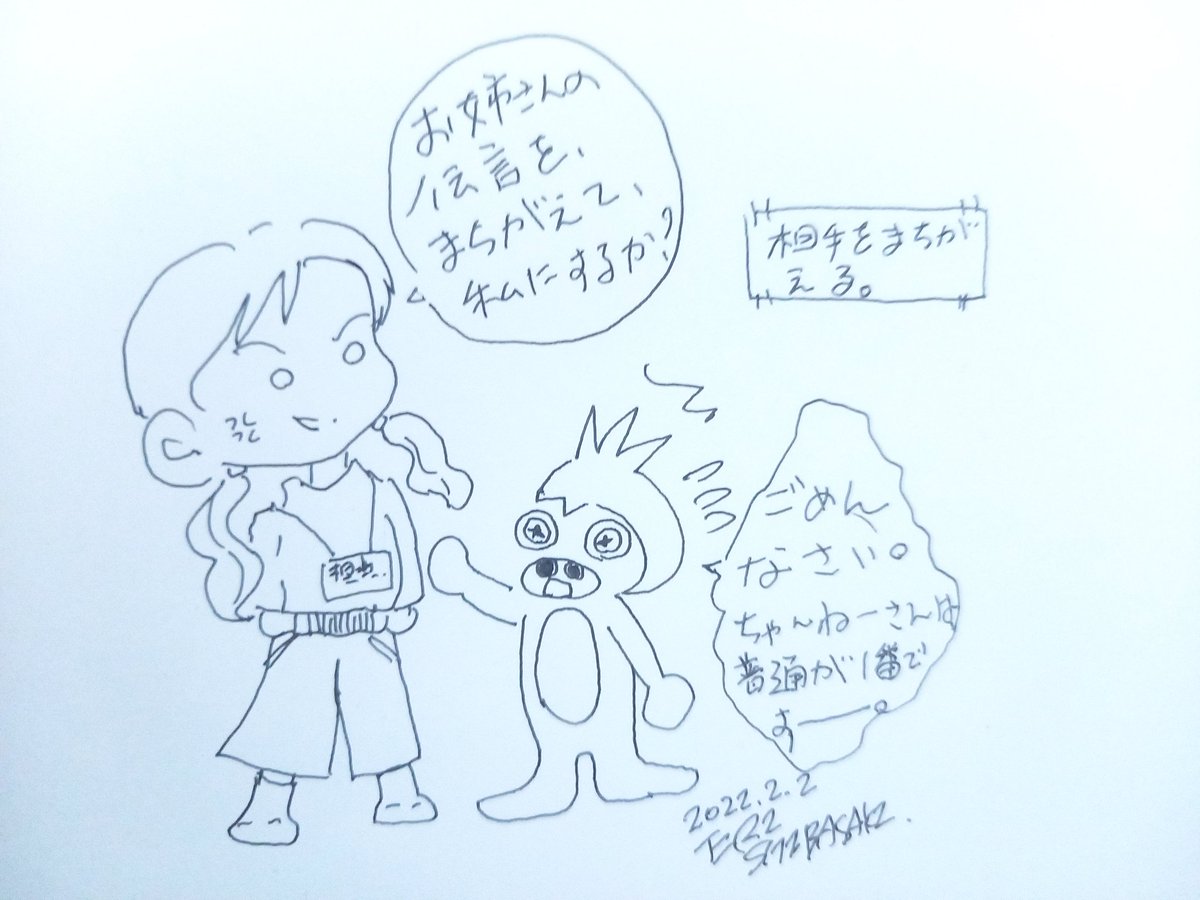 お姉さんの
伝言を、
まちがえて、
私にするか?
相手をまちが
える。
担当
ごめん
なさい。
ちゃんねーさんは
普通が1番で
すー。
2022.2.2